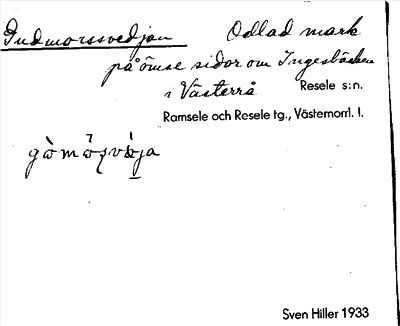 Gudmorssvedjan Odlad mark
på ömse sidor om Ingesbäcken
i Västerrå Resele s:n.
Ramsele och Resele tg., Västernorrl. l.
Sven Hiller 1933